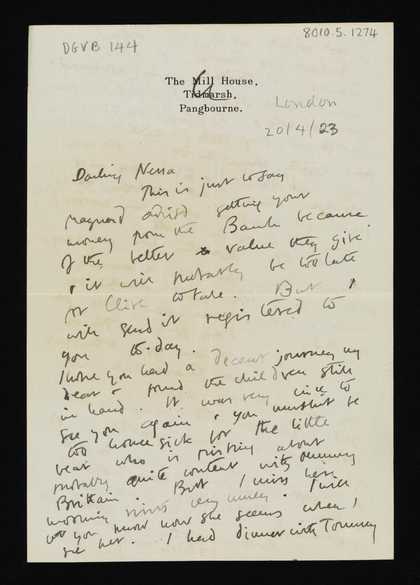 DGVB 144
8010.5.1274
The Mill House,
Tidmarsh,
Pangbourne.
London
20/4/23
Darling Nessa
This is just to say
Maynard advised getting your
money from the Bank because
of the better value they give.
it will probably be too late
for Clive to take. But I
will send it registered to
you to-day.
I hope you had a decent journey my
dear & found the children still
in hand. It was very nice to
see you again & you mustn't be
too homesick for the little
bear who is rushing about
probably quite content with
Brittain. But I miss her
morning visits very much. I will
let you know how she seems when I
see her. I had dinner with Tommy